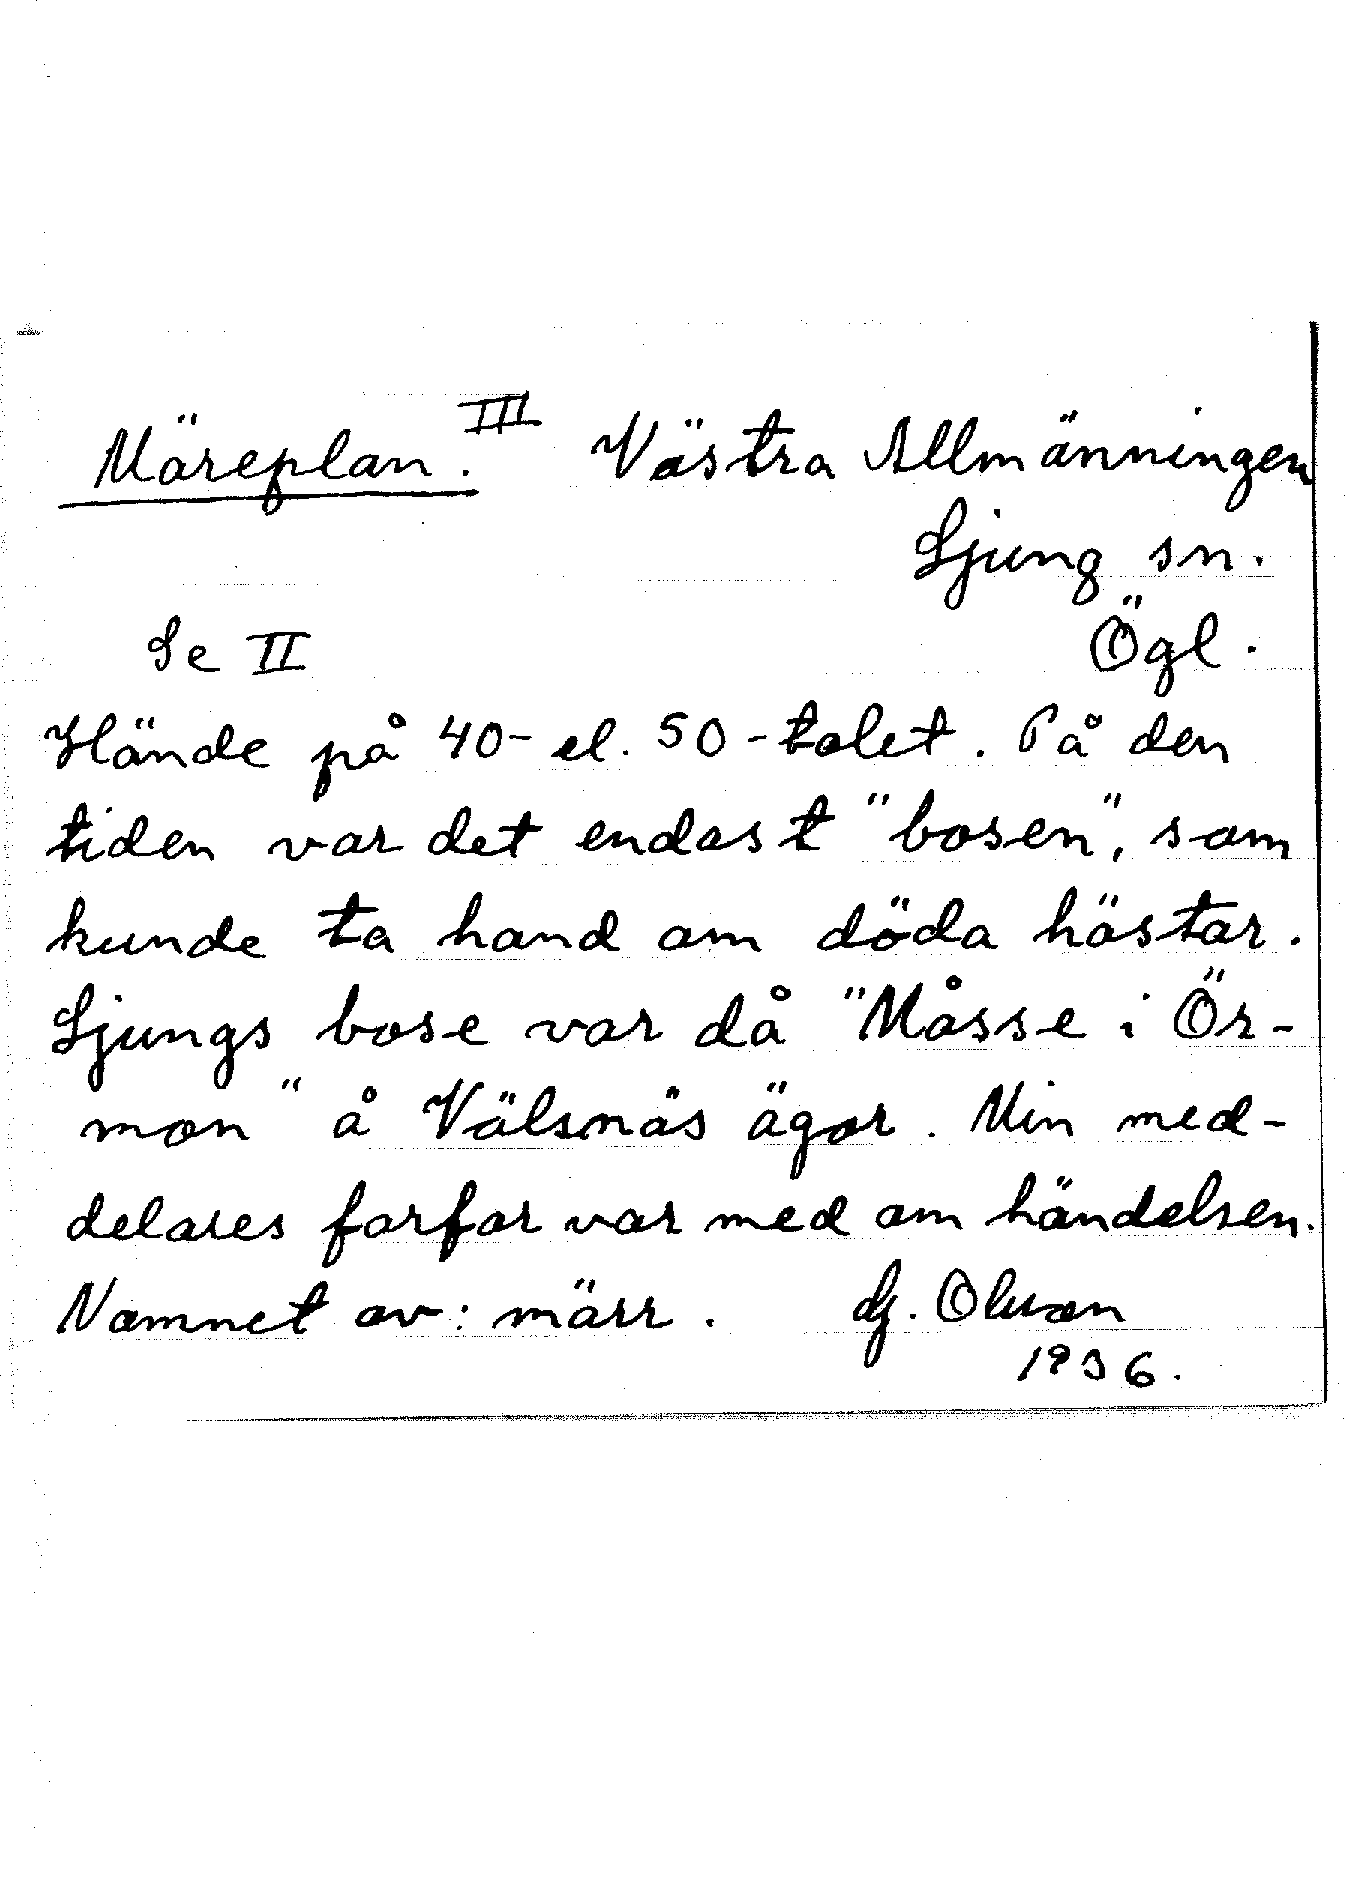 Märeplan. III Västra Allmänningen
Ljung sn.
Se II Ögl.
Hände på 40- el. 50-talet. På den
tiden var det endast "bosen", som
kunde ta hand om döda hästar.
Ljungs bose var då "Måsse i Ör-
mon" å Välsnäs ägor. Min med-
delares farfar var med om händelsen.
Namnet av: märr. Hj. Olsson
1936.